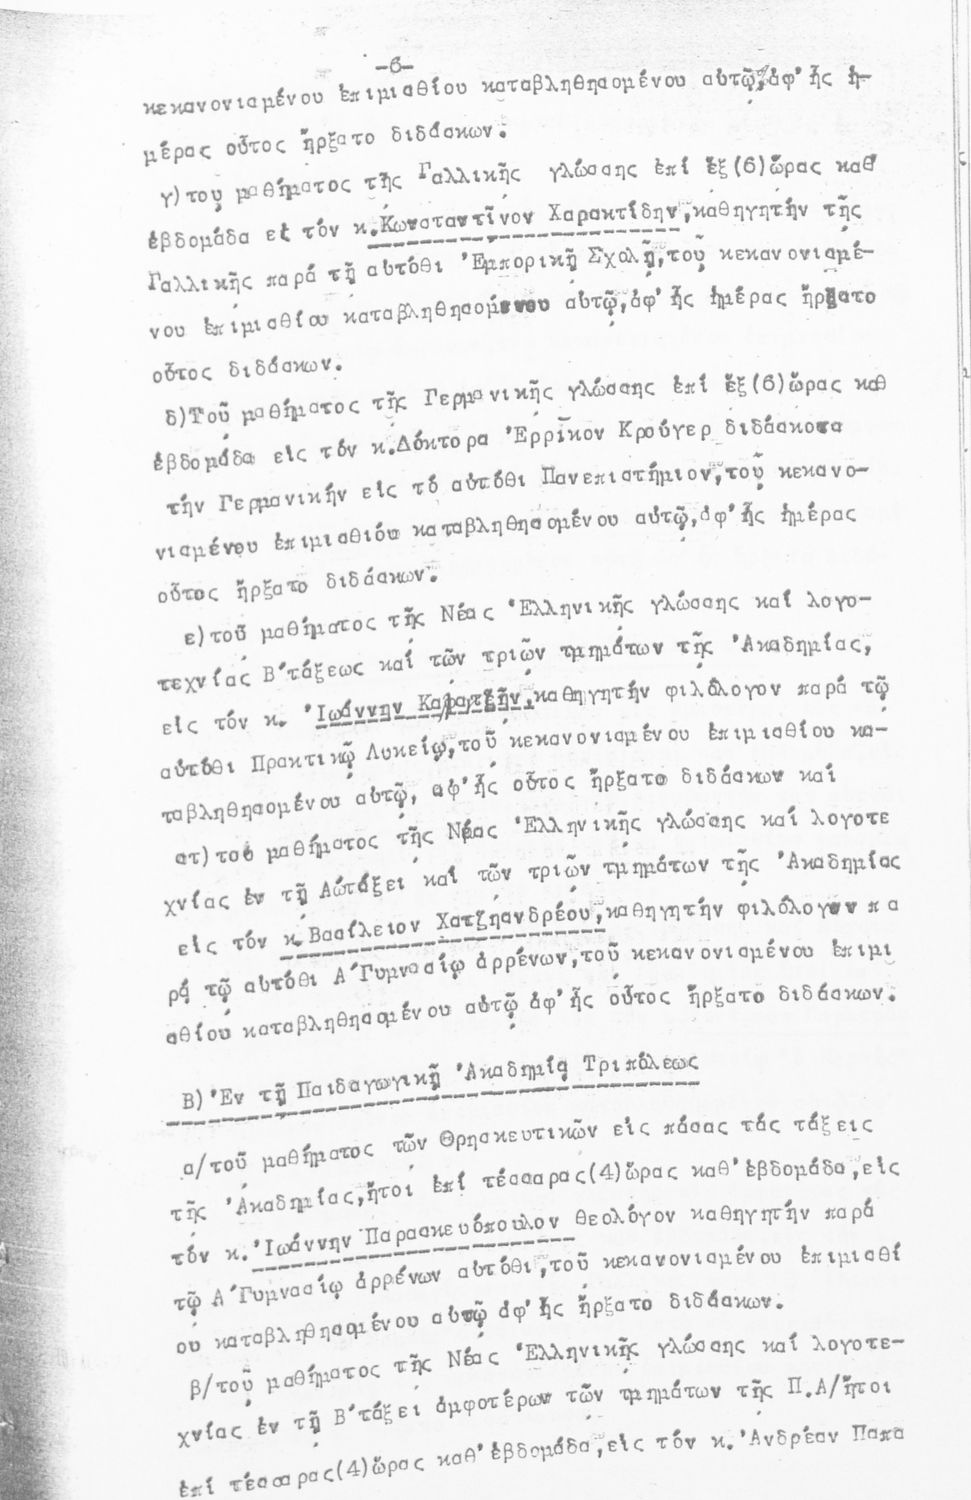 -6-
κεκανονισμένου ἐπιμισθίου καταβληθησομένου αὐτῷ, ἀφ' ἧς ἡ-
μέρας οὗτος ἤρξατο διδάσκων.
γ) του μαθήματος τῆς Γαλλικῆς γλώσσης ἐπί ἕξ(6) ὥρας καθ'
ἑβδομάδα εἰ τόν κ. Κωνσταντῖνον Χαρακτίδην, καθηγητήν τῆς
Γαλλικῆς παρά τῇ αὐτόθι Ἐμπορικῇ Σχολῇ, τοῦ κεκανονισμέ-
νου ἐπιμισθίου καταβληθησομένου αὐτῷ, ἀφ' ἧς ἡμέρας ἤρξατο
οὗτος διδάσκων.
δ) Τοῦ μαθήματος τῆς Γερμανικῆς γλώσσης ἐπί ἕξ(6) ὥρας καθ
ἑβδομάδα εἰς τόν κ. Δόκτορα Ἐρρῖκον Κρούγερ διδάσκοτα
τήν Γερμανικήν εἰς τό αὐτόθι Πανεπιστήμιον, τοῦ κεκανο-
νισμένου ἐπιμισθίου καταβληθησομένου αὐτῷ, ἀφ' ἧς ἡμέρας
οὗτος ἤρξατο διδάσκων.
ε) τοῦ μαθήματος τῆς Νέας Ἑλληνικῆς γλώσσης καί λογο-
τεχνίας Β' τάξεως καί τῶν τριῶν τμημάτων τῆς Ἀκαδημίας,
εἰς τόν κ. Ἰωάννην Καρατζῆν, καθηγητήν φιλόλογον παρά τῷ
αὐτόθι Πρακτικῷ Λυκείῳ, τοῦ κεκανονισμένου ἐπιμισθίου κα-
ταβληθησομένου αὐτῷ, ἀφ' ἧς οὗτος ἤρξατο διδάσκων καί
στ) τοῦ μαθήματος τῆς Νέας Ἑλληνικῆς γλώσσης καί λογοτε
χνίας ἐν τῇ Α' τάξει καί τῶν τριῶν τμημάτων τῆς Ἀκαδημίας
εἰς τόν κ. Βασίλειον Χατζηανδρέου, καθηγητήν φιλόλογον πα
ρά τῷ αὐτόθι Α' Γυμνασίῳ ἀρρένων, τοῦ κεκανονισμένου ἐπιμι
σθίου καταβληθησομένου αὐτῷ ἀφ' ἧς οὗτος ἤρξατο διδάσκων.
Β) Ἐν τῇ Παιδαγωγικῇ Ἀκαδημίᾳ Τριπόλεως
α/ τοῦ μαθήματος τῶν Θρησκευτικῶν εἰς πάσας τάς τάξεις
τῆς Ἀκαδημίας, ἤτοι ἐπί τέσσαρας(4) ὥρας καθ' ἑβδομάδα, εἰς
τόν κ. Ἰωάννην Παρασκευόπουλον θεολόγον καθηγητήν παρά
τῷ Α' Γυμνασίῳ ἀρρένων αὐτόθι, τοῦ κεκανονισμένου ἐπιμισθί
ου καταβληθησομένου αὐτῷ ἀφ' ἧς ἤρξατο διδάσκων.
β/ τοῦ μαθήματος τῆς Νέας Ἑλληνικῆς γλώσσης καί λογοτε-
χνίας ἐν τῇ Β' τάξει ἀμφοτέρων τῶν τμημάτων τῆς Π.Α/ἤτοι
ἐπί τέσσαρας(4) ὥρας καθ' ἑβδομάδα, εἰς τόν κ. Ἀνδρέαν Παπα